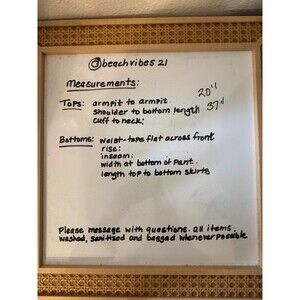 @beachvibes21
Measurements:
Tops: armpit to armpit 20"
shoulder to bottom length 37"
cuff to neck:
Bottoms: waist-tape flat across front
rise:
inseam:
width at bottom of pant.
length top to bottom skirts
Please message with questions. all items
washed, sanitized and bagged whenever possible